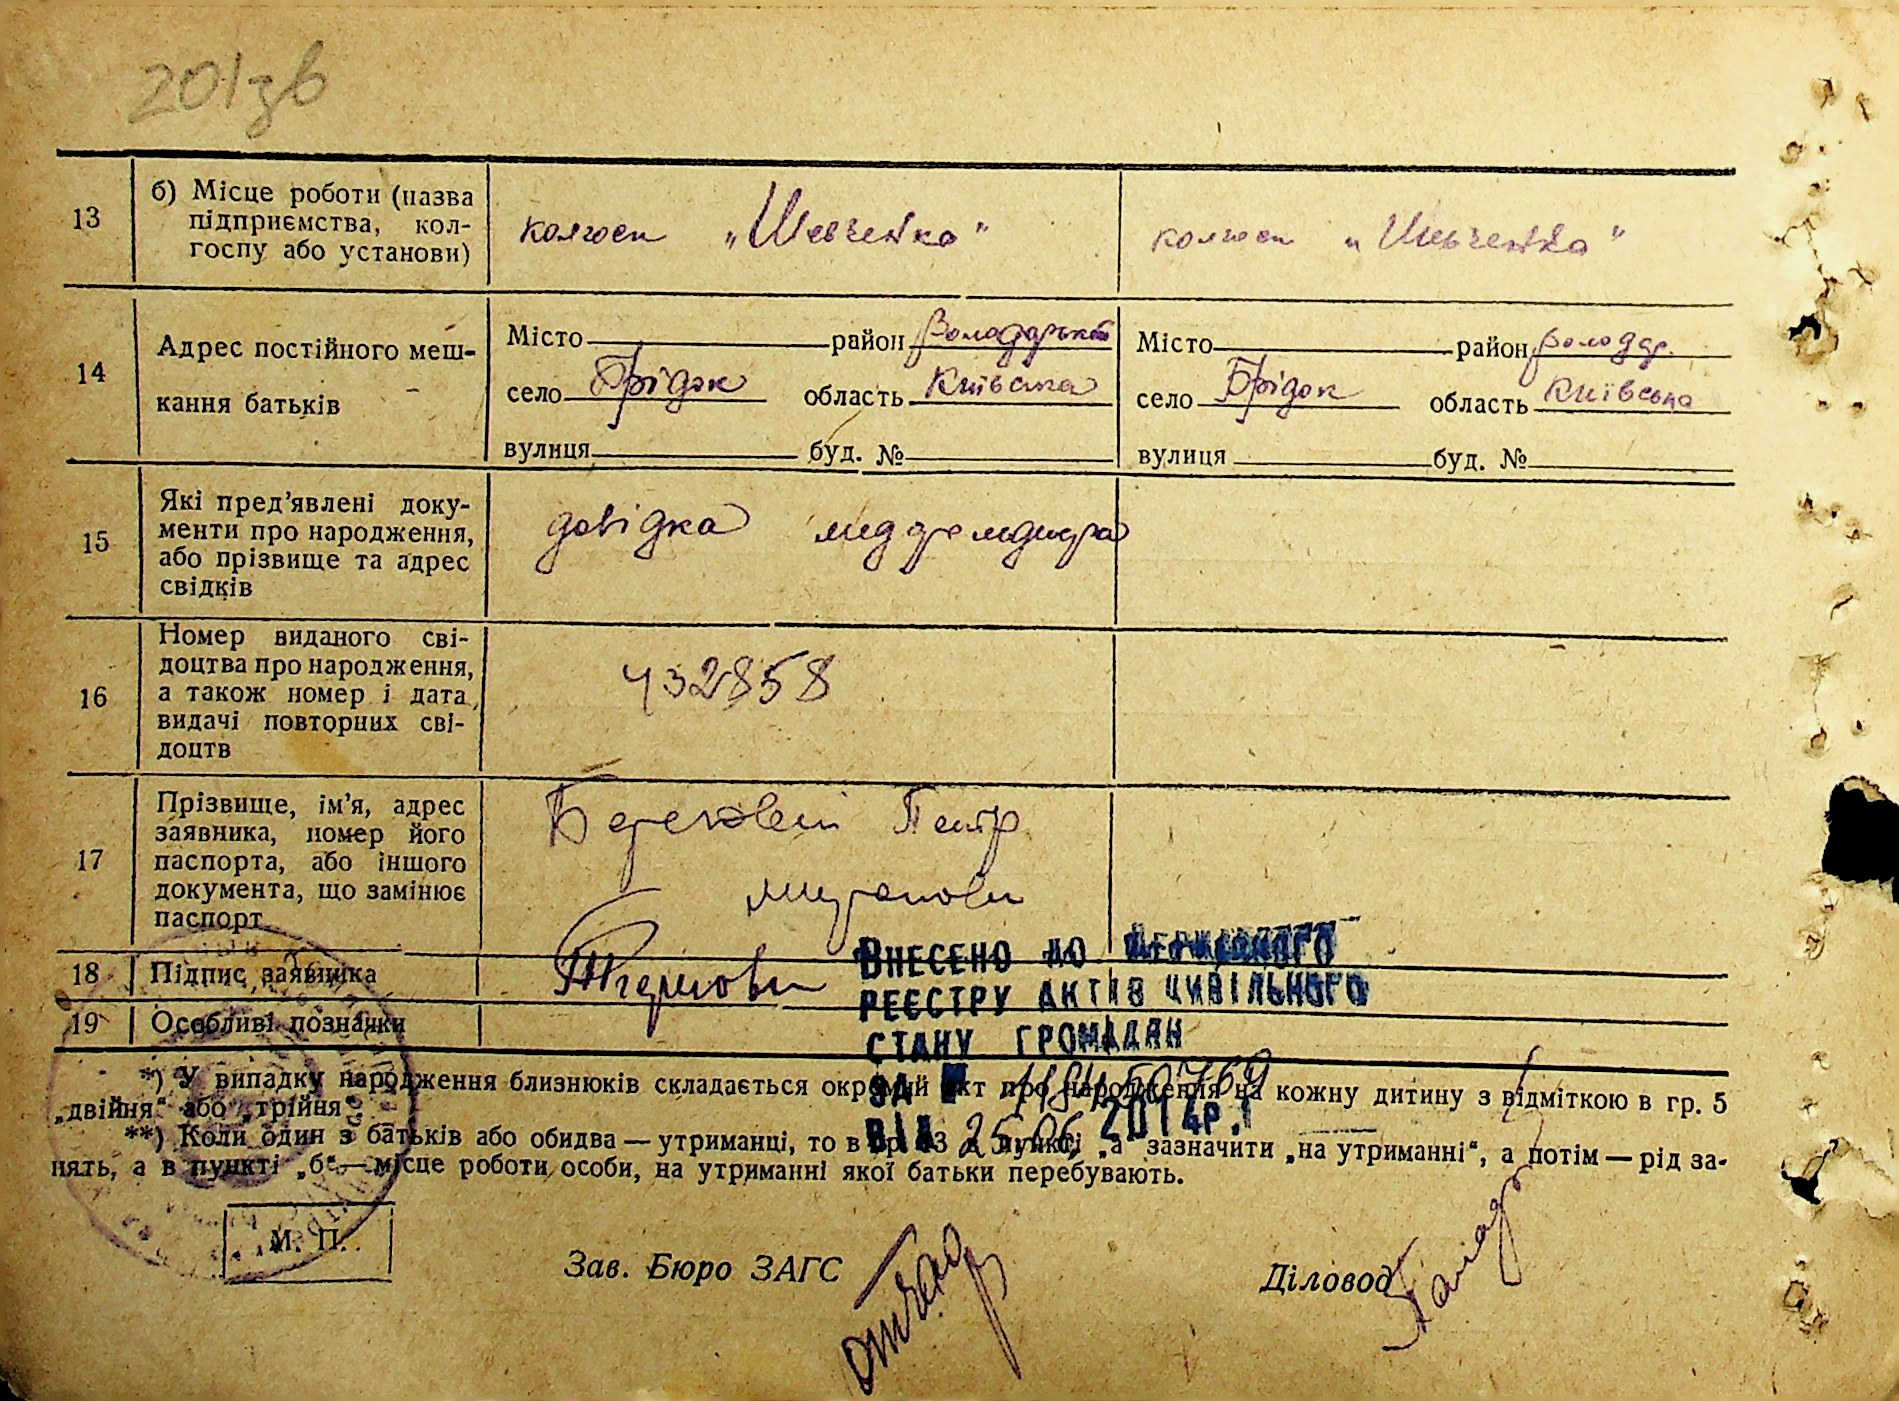 201зв
13
б) Місце роботи (назва
підприємства, кол-
госпу або установи)
колгосп „Шевченка"
колгосп „Шевченка"
14
Адрес постійного меш-
кання батьків
Місто район Володарський
село Брідок область Київська
вулиця буд. №
Місто район Володар.
село Брідок область Київська
вулиця буд. №
15
Які пред'явлені доку-
менти про народження,
або прізвище та адрес
свідків
довідка
16
Номер виданого сві-
доцтва про народження,
а також номер і дата
видачі повторних сві-
доцтв
432858
17
Прізвище, ім'я, адрес
заявника, номер його
паспорта, або іншого
документа, що замінює
паспорт
Петр
18
Підпис заявника
19
Особливі позначки
Внесено до Державного
реєстру актів цивільного
стану громадян
за №
від 25.06. 2014р.
*) У випадку народження близнюків складається окремий акт про народження на кожну дитину з відміткою в гр. 5
„двійня" або „трійня".
**) Коли один з батьків або обидва — утриманці, то в гр. 13 в пункті „а" зазначити „на утриманні", а потім — рід за-
нять, а в пункті „б" — місце роботи особи, на утриманні якої батьки перебувають.
М. П.
Зав. Бюро ЗАГС
Діловод